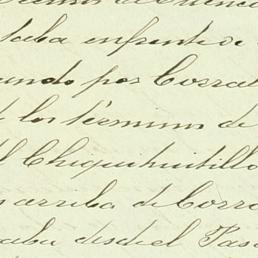 taba enfrente de
ando por Corral
de los términos de
el Chiquihuitillo
arriba de Corra
taba desde el Pas